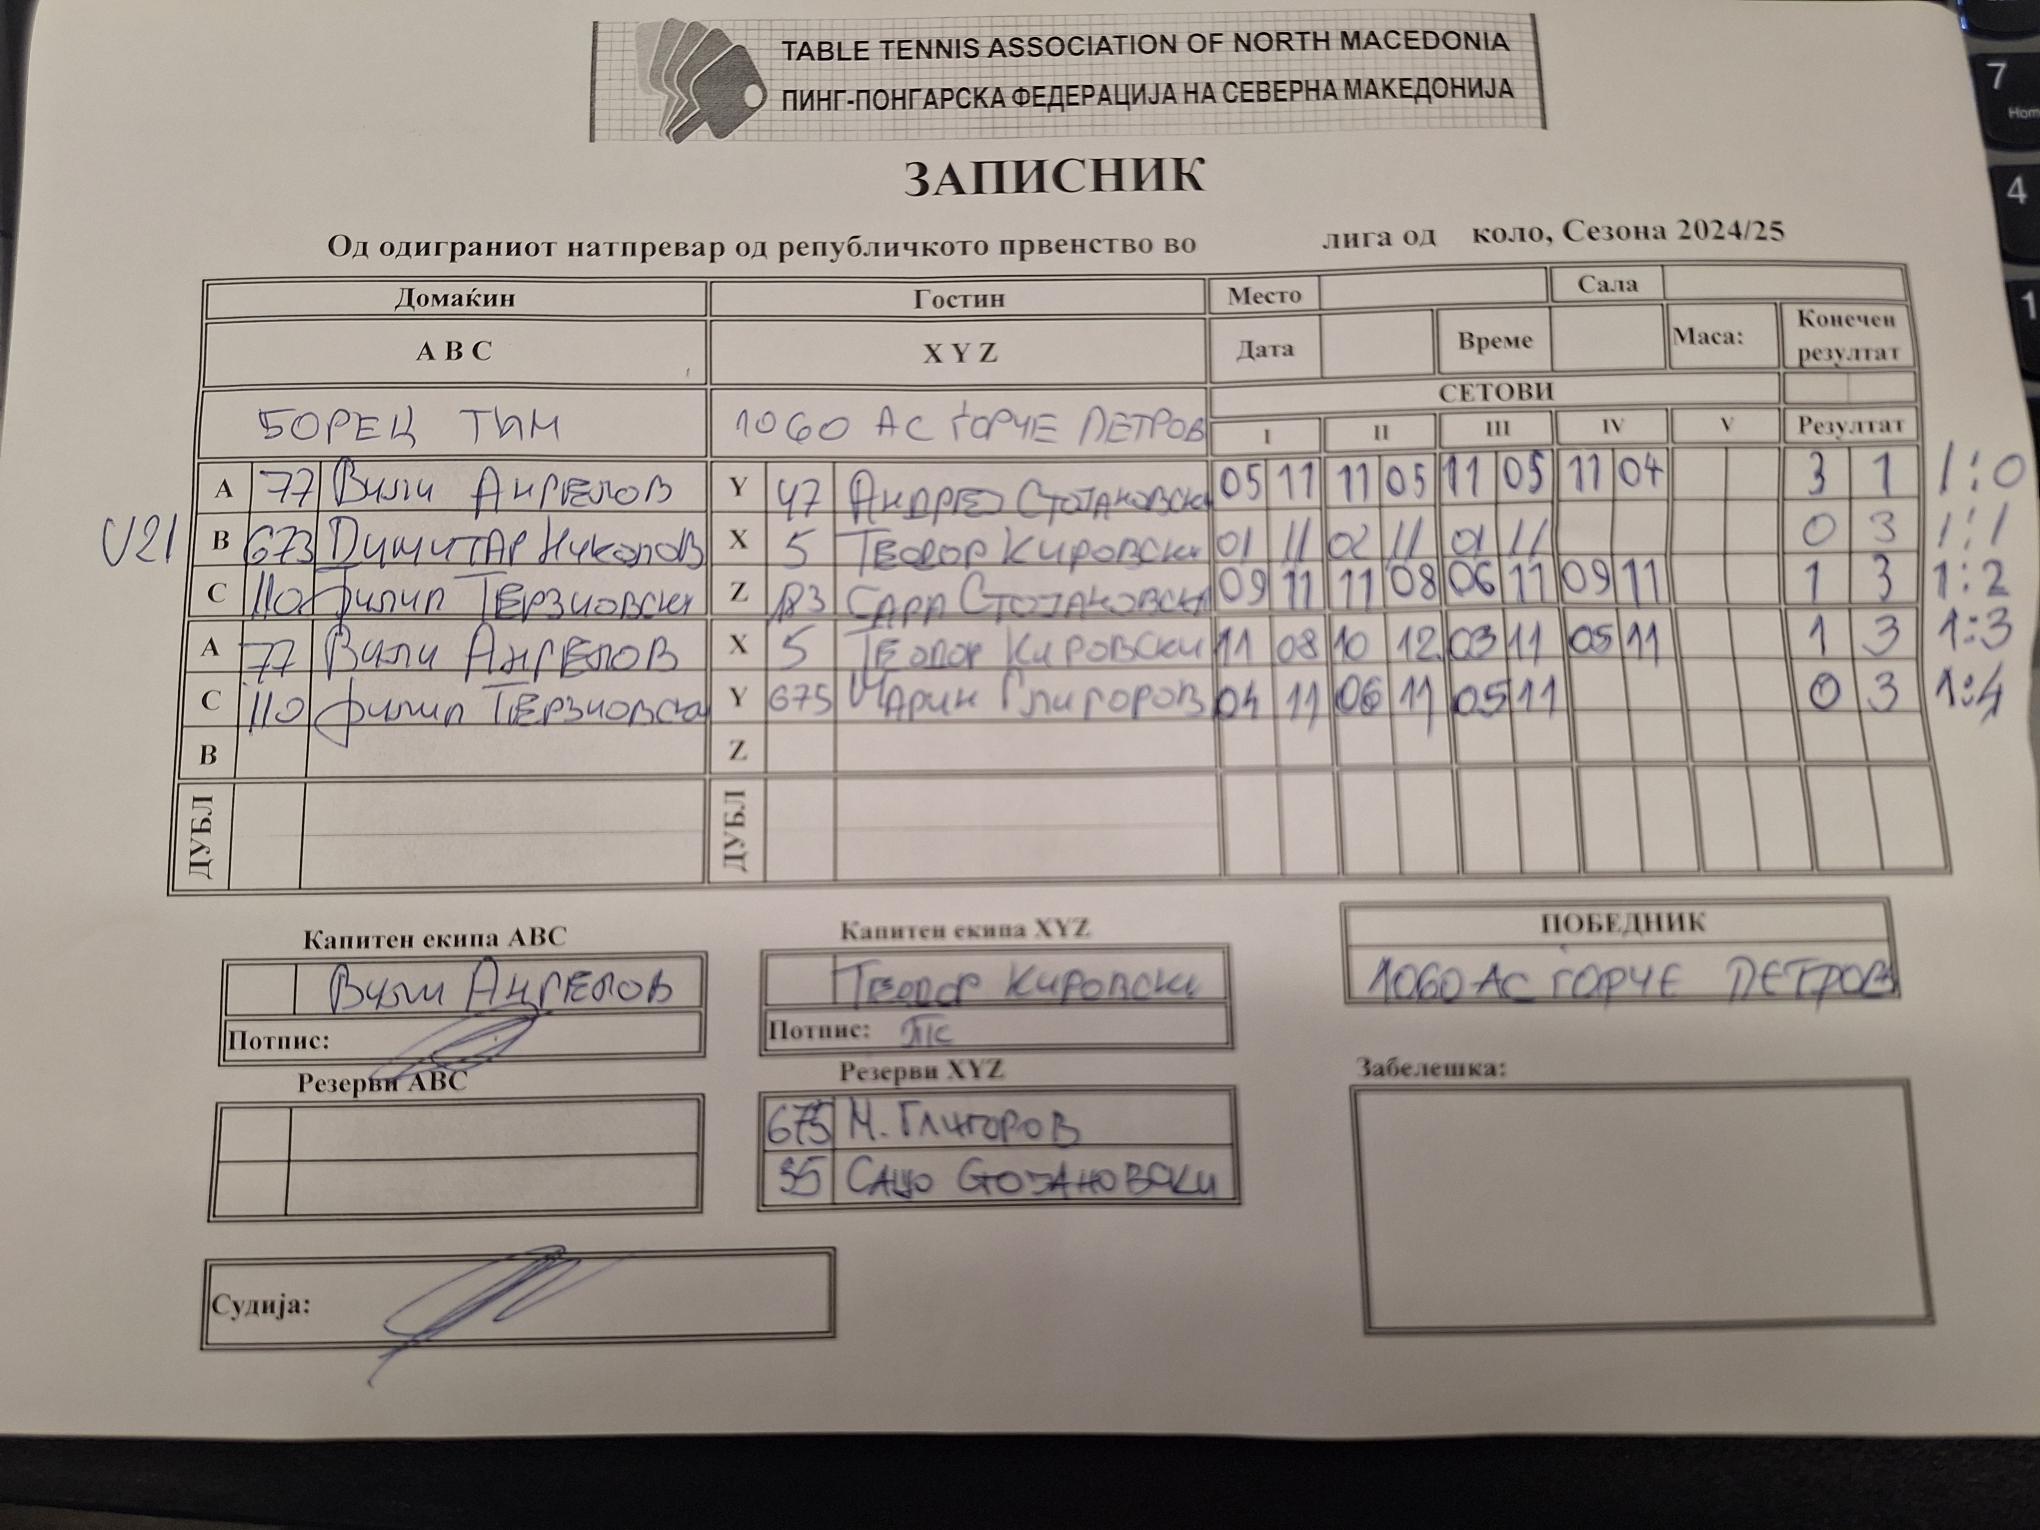 TABLE TENNIS ASSOCIATION OF NORTH MACEDONIA
ПИНГ-ПОНГАРСКА ФЕДЕРАЦИЈА НА СЕВЕРНА МАКЕДОНИЈА
ЗАПИСНИК
Од одиграниот натпревар од републичкото првенство во лига од коло, Сезона 2024/25
Домаќин Гостин Место Сала
A B C X Y Z Дата Време Маса: Конечен резултат
СЕТОВИ
БОРЕЦ ТИМ 1060 АС ЃОРЧЕ ПЕТРОВ I II III IV V Резултат
A 77 Вили Ангелов Y 47 Андреј Стојановски 05 11 11 05 11 05 11 04 3 1 1:0
U21 B 673 Димитар Николов X 5 Теодор Кировски 01 11 02 11 01 11 0 3 1:1
C 110 Филип Терзиовски Z 183 Сара Стојановска 09 11 11 08 06 11 09 11 1 3 1:2
A 77 Вили Ангелов X 5 Теодор Кировски 11 08 10 12 03 11 05 11 1 3 1:3
C 110 Филип Терзиовски Y 675 Марин Глигоров 04 11 06 11 05 11 0 3 1:4
B Z
ДУБЛ ДУБЛ
Капитен екипа ABC Капитен екипа XYZ ПОБЕДНИК
Вили Ангелов Теодор Кировски 1060 АС ЃОРЧЕ ПЕТРОВ
Потпис: Потпис:
Резерви ABC Резерви XYZ Забелешка:
675 М. Глигоров
35 Сашо Стојановски
Судија:
7
Hom
4
1